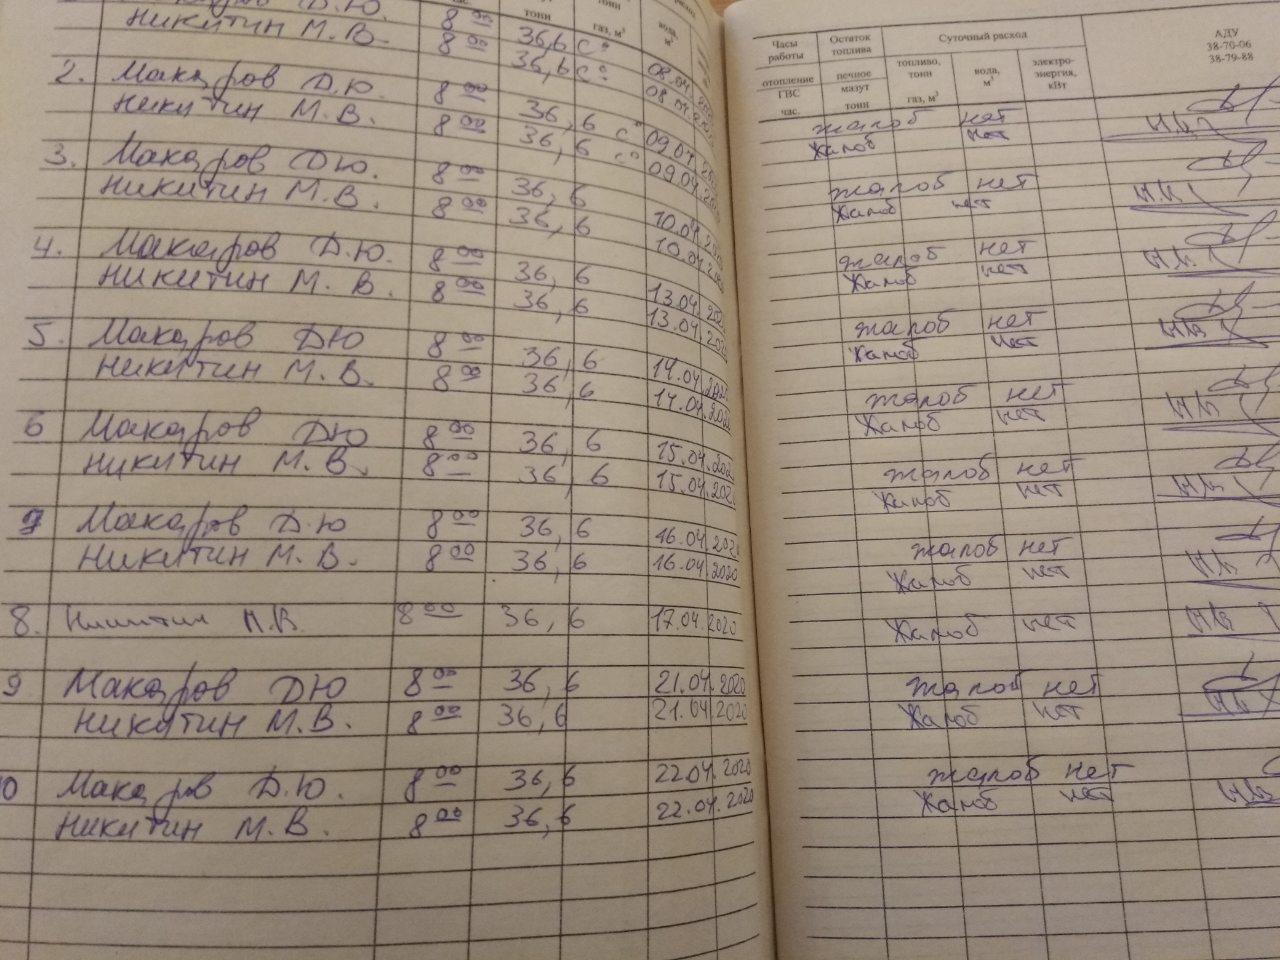 тонн
газ, м³
вода, м³
Никитин М. В. 8 00 36,6 с° 08.04.
2. Макаров Д.Ю. 8 00 36,6 с° 09.04.
Никитин М. В. 8 00 36,6 с° 09.04.
3. Макаров Д.Ю. 8 00 36,6 10.04.
Никитин М. В. 8 00 36,6 10.04.
4. Макаров Д.Ю. 8 00 36,6 13.04.
Никитин М. В. 8 00 36,6 13.04.
5. Макаров ДЮ 8 00 36,6 14.04.
Никитин М. В. 8 00 36,6 14.04.
6 Макаров ДЮ 8 00 36,6 15.04.
Никитин М. В. 8 00 36,6 15.04.
7 Макаров Д.Ю 8 00 36,6 16.04.
Никитин М. В. 8 00 36,6 16.04.2020
8. Никитин М.В. 8 00 36,6 17.04.2020
9 Макаров ДЮ 8 00 36,6 21.04.2020
Никитин М.В. 8 00 36,6 21.04.2020
10 Макаров Д.Ю. 8 00 36,6 22.04.2020
Никитин М. В. 8 00 36,6 22.04.2020
Часы работы
отопление
ГВС
час.
Остаток топлива
печное
мазут
тонн
Суточный расход
топливо, тонн
газ, м³
вода, м³
электро-
энергия,
кВт
АДУ
38-70-06
38-79-88
жалоб нет
Жалоб нет
жалоб нет
Жалоб нет
жалоб нет
Жалоб нет
жалоб нет
Жалоб нет
жалоб нет
Жалоб нет
жалоб нет
Жалоб нет
жалоб нет
Жалоб нет
Жалоб нет
жалоб нет
Жалоб нет
жалоб нет
Жалоб нет